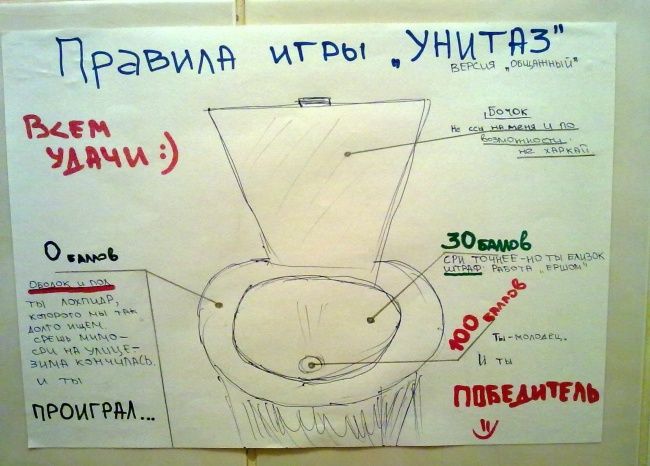 Правила игры „УНИТАЗ"
ВЕРСИЯ „ОБЩАЖНЫЙ"
ВСЕМ
УДАЧИ:)
БОЧОК
НЕ ССЫ НА МЕНЯ И ПО
ВОЗМОТНОСТИ
НЕ ХАРКАЙ
0 БАЛЛОВ
ОБОДОК И ПОЛ
ТЫ ЛОХПИДР,
КОТОРОГО МЫ ТАК
ДОЛГО ИЩЕМ.
СРЕШЬ МИМО-
СРИ НА УЛИЦЕ-
ЗИМА КОНЧИЛАСЬ.
И ТЫ
ПРОИГРАЛ...
30 БАЛЛОВ
СРИ ТОЧНЕЕ-НО ТЫ БЛИЗОК
ШТРАФ: РАБОТА „ЕРШОМ"
100 БАЛЛОВ
ТЫ-МОЛОДЕЦ.
И ТЫ
ПОБЕДИТЕЛЬ
=)